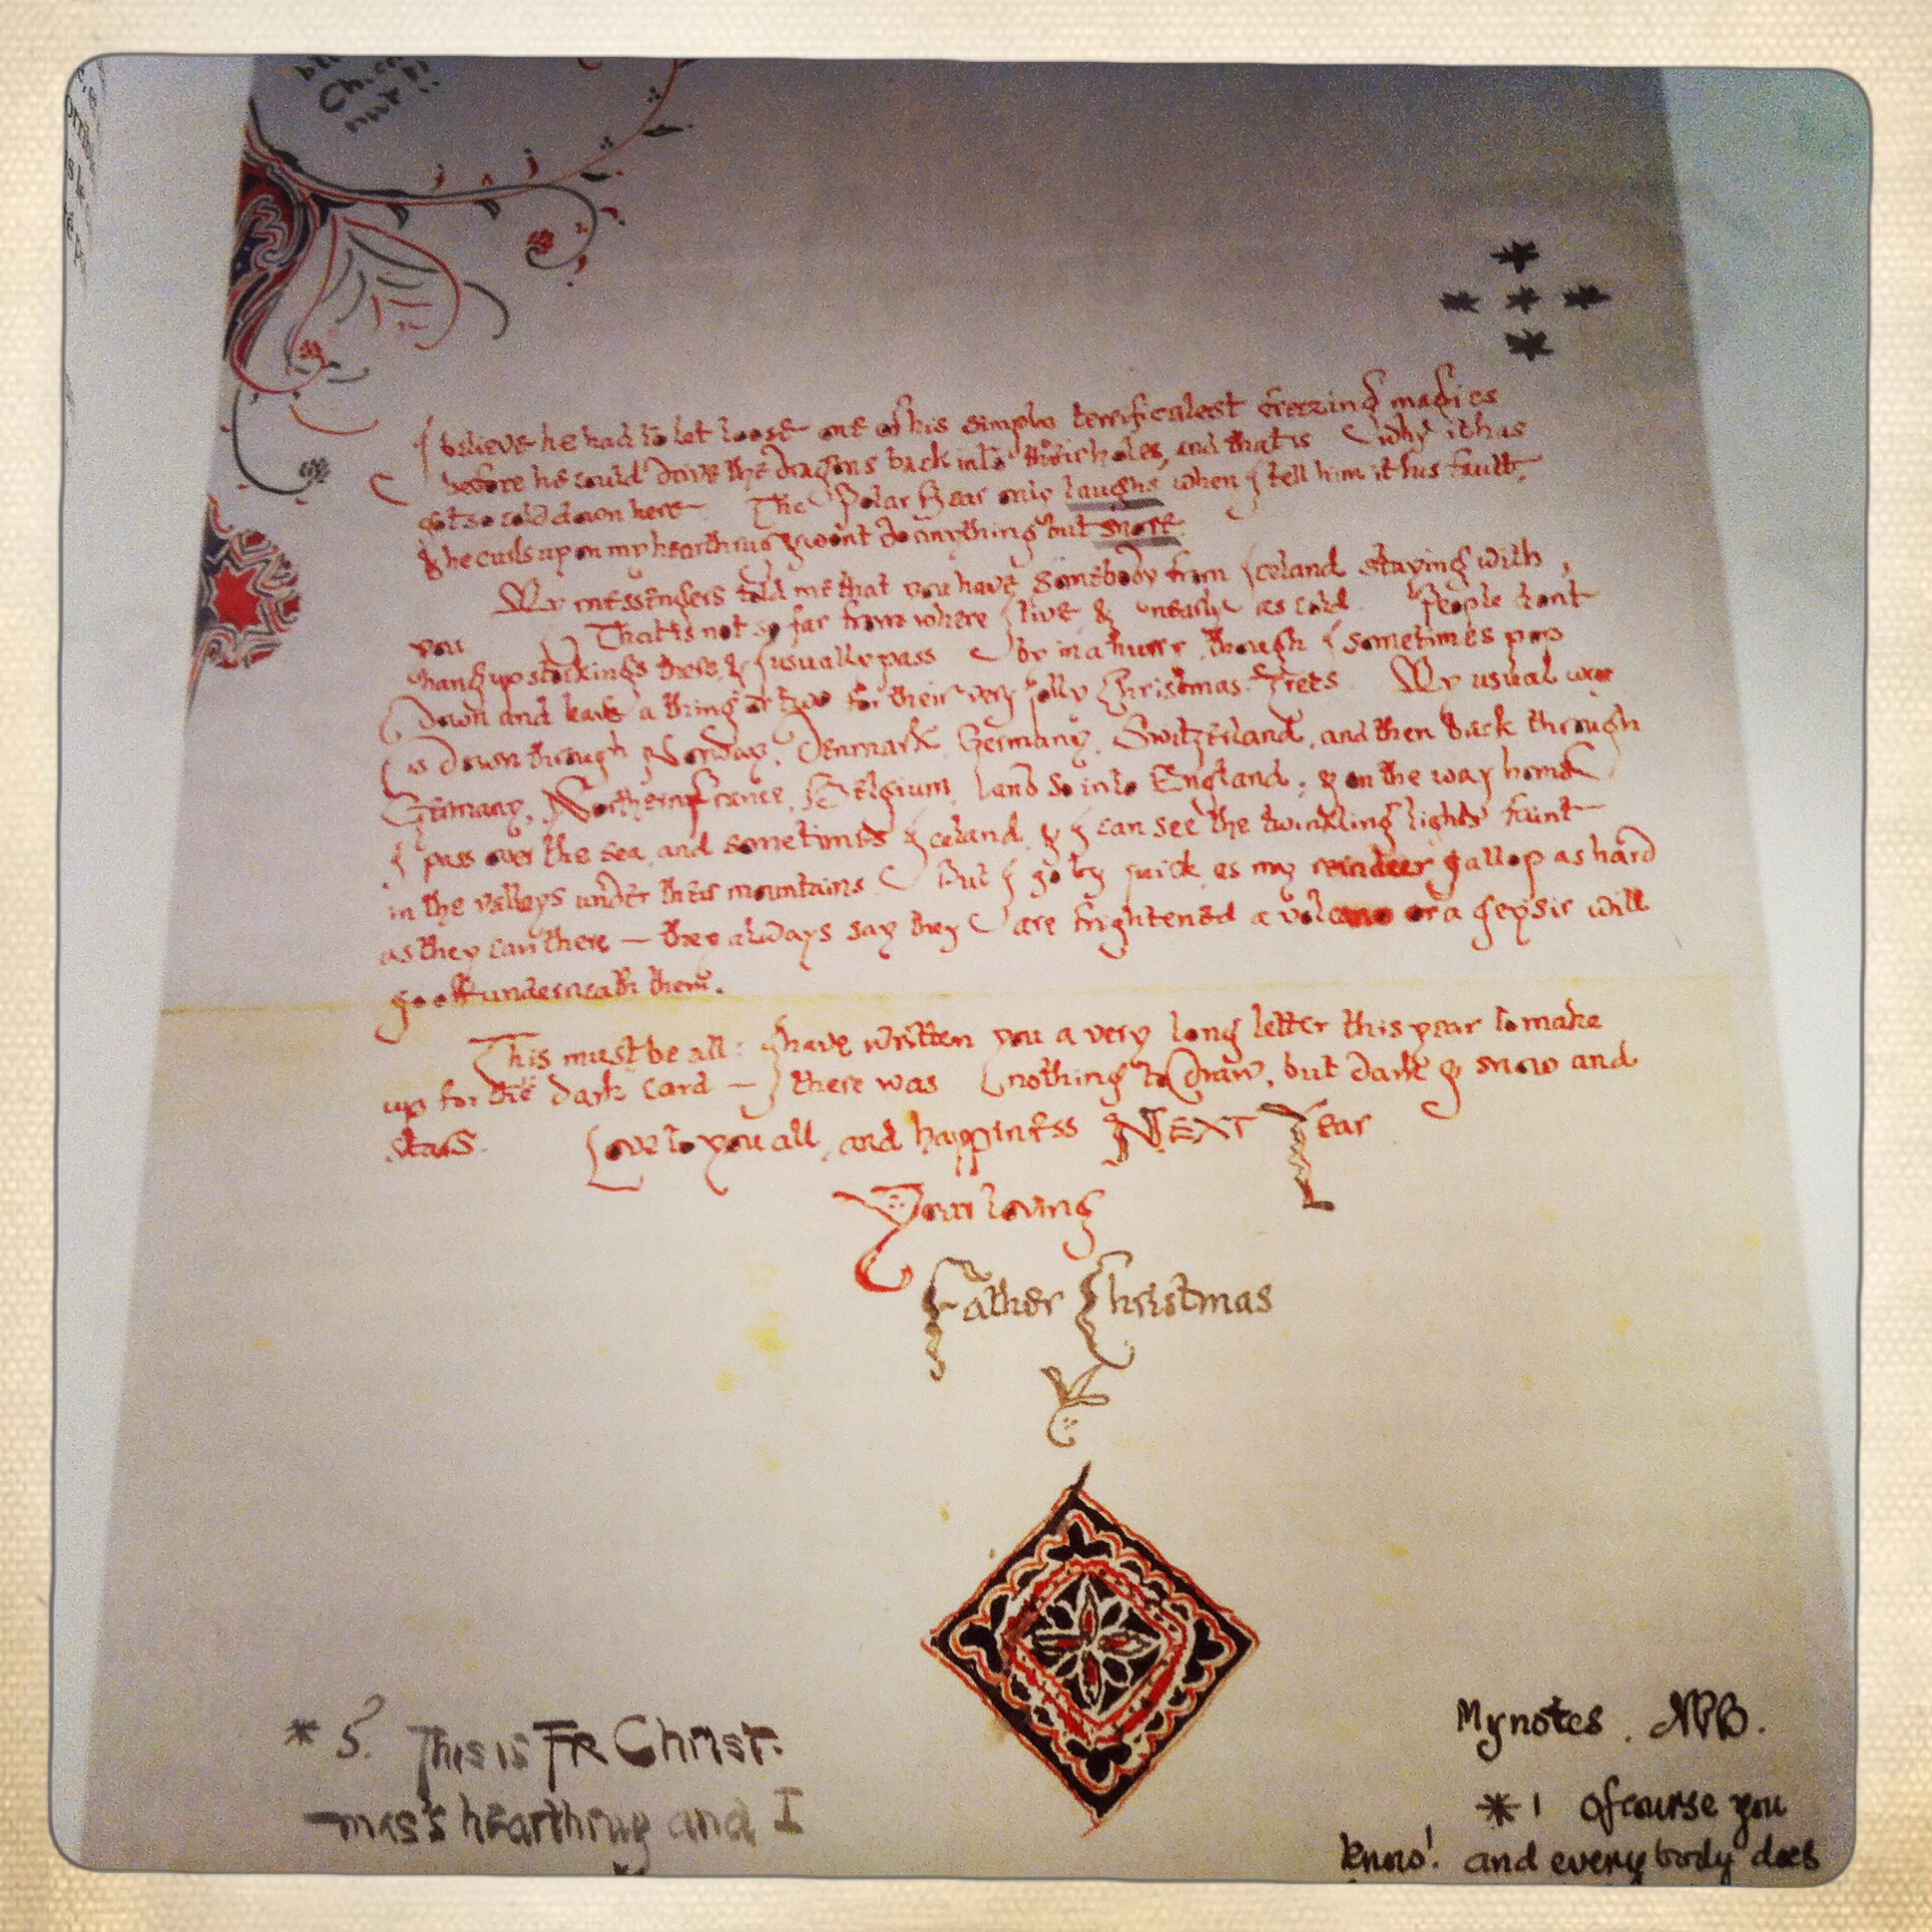 Ch
nut!!
I believe he had to let loose one of his simply terrificalest freezing magics
before he could drive the dragons back into their holes, and that is why it has
got so cold down here. The Polar Bear only laughs when I tell him it his fault,
& he curls up on my hearthrug & wont do anything but snore.
My messengers told me that you have somebody from Iceland staying with
you. That is not so far from where I live, & nearly as cold. People dont
hang up stockings there, & I usually pass by in a hurry, though I sometimes pop
down and leave a thing or two for their very jolly Christmas Trees. My usual way
is down through Norway, Denmark, Germany, Switzerland, and then back through
Germany, Northern France, Belgium, and so into England; & on the way home
I pass over the sea, and sometimes Iceland, & I can see the twinkling lights faint
in the valleys under their mountains. But I go by quick, as my reindeer gallop as hard
as they can there — they always say they are frightened a volcano or a geysir will
go off underneath them.
This must be all: I have written you a very long letter this year to make
up for the dark card — there was nothing to draw, but dark & snow and
stars. Love to you all, and happiness NEXT Year
Your loving
Father Christmas
* 5. This is FR Christ-
mas's hearthrug and I
My notes. NPB.
* 1 Of course you
know! and everybody does